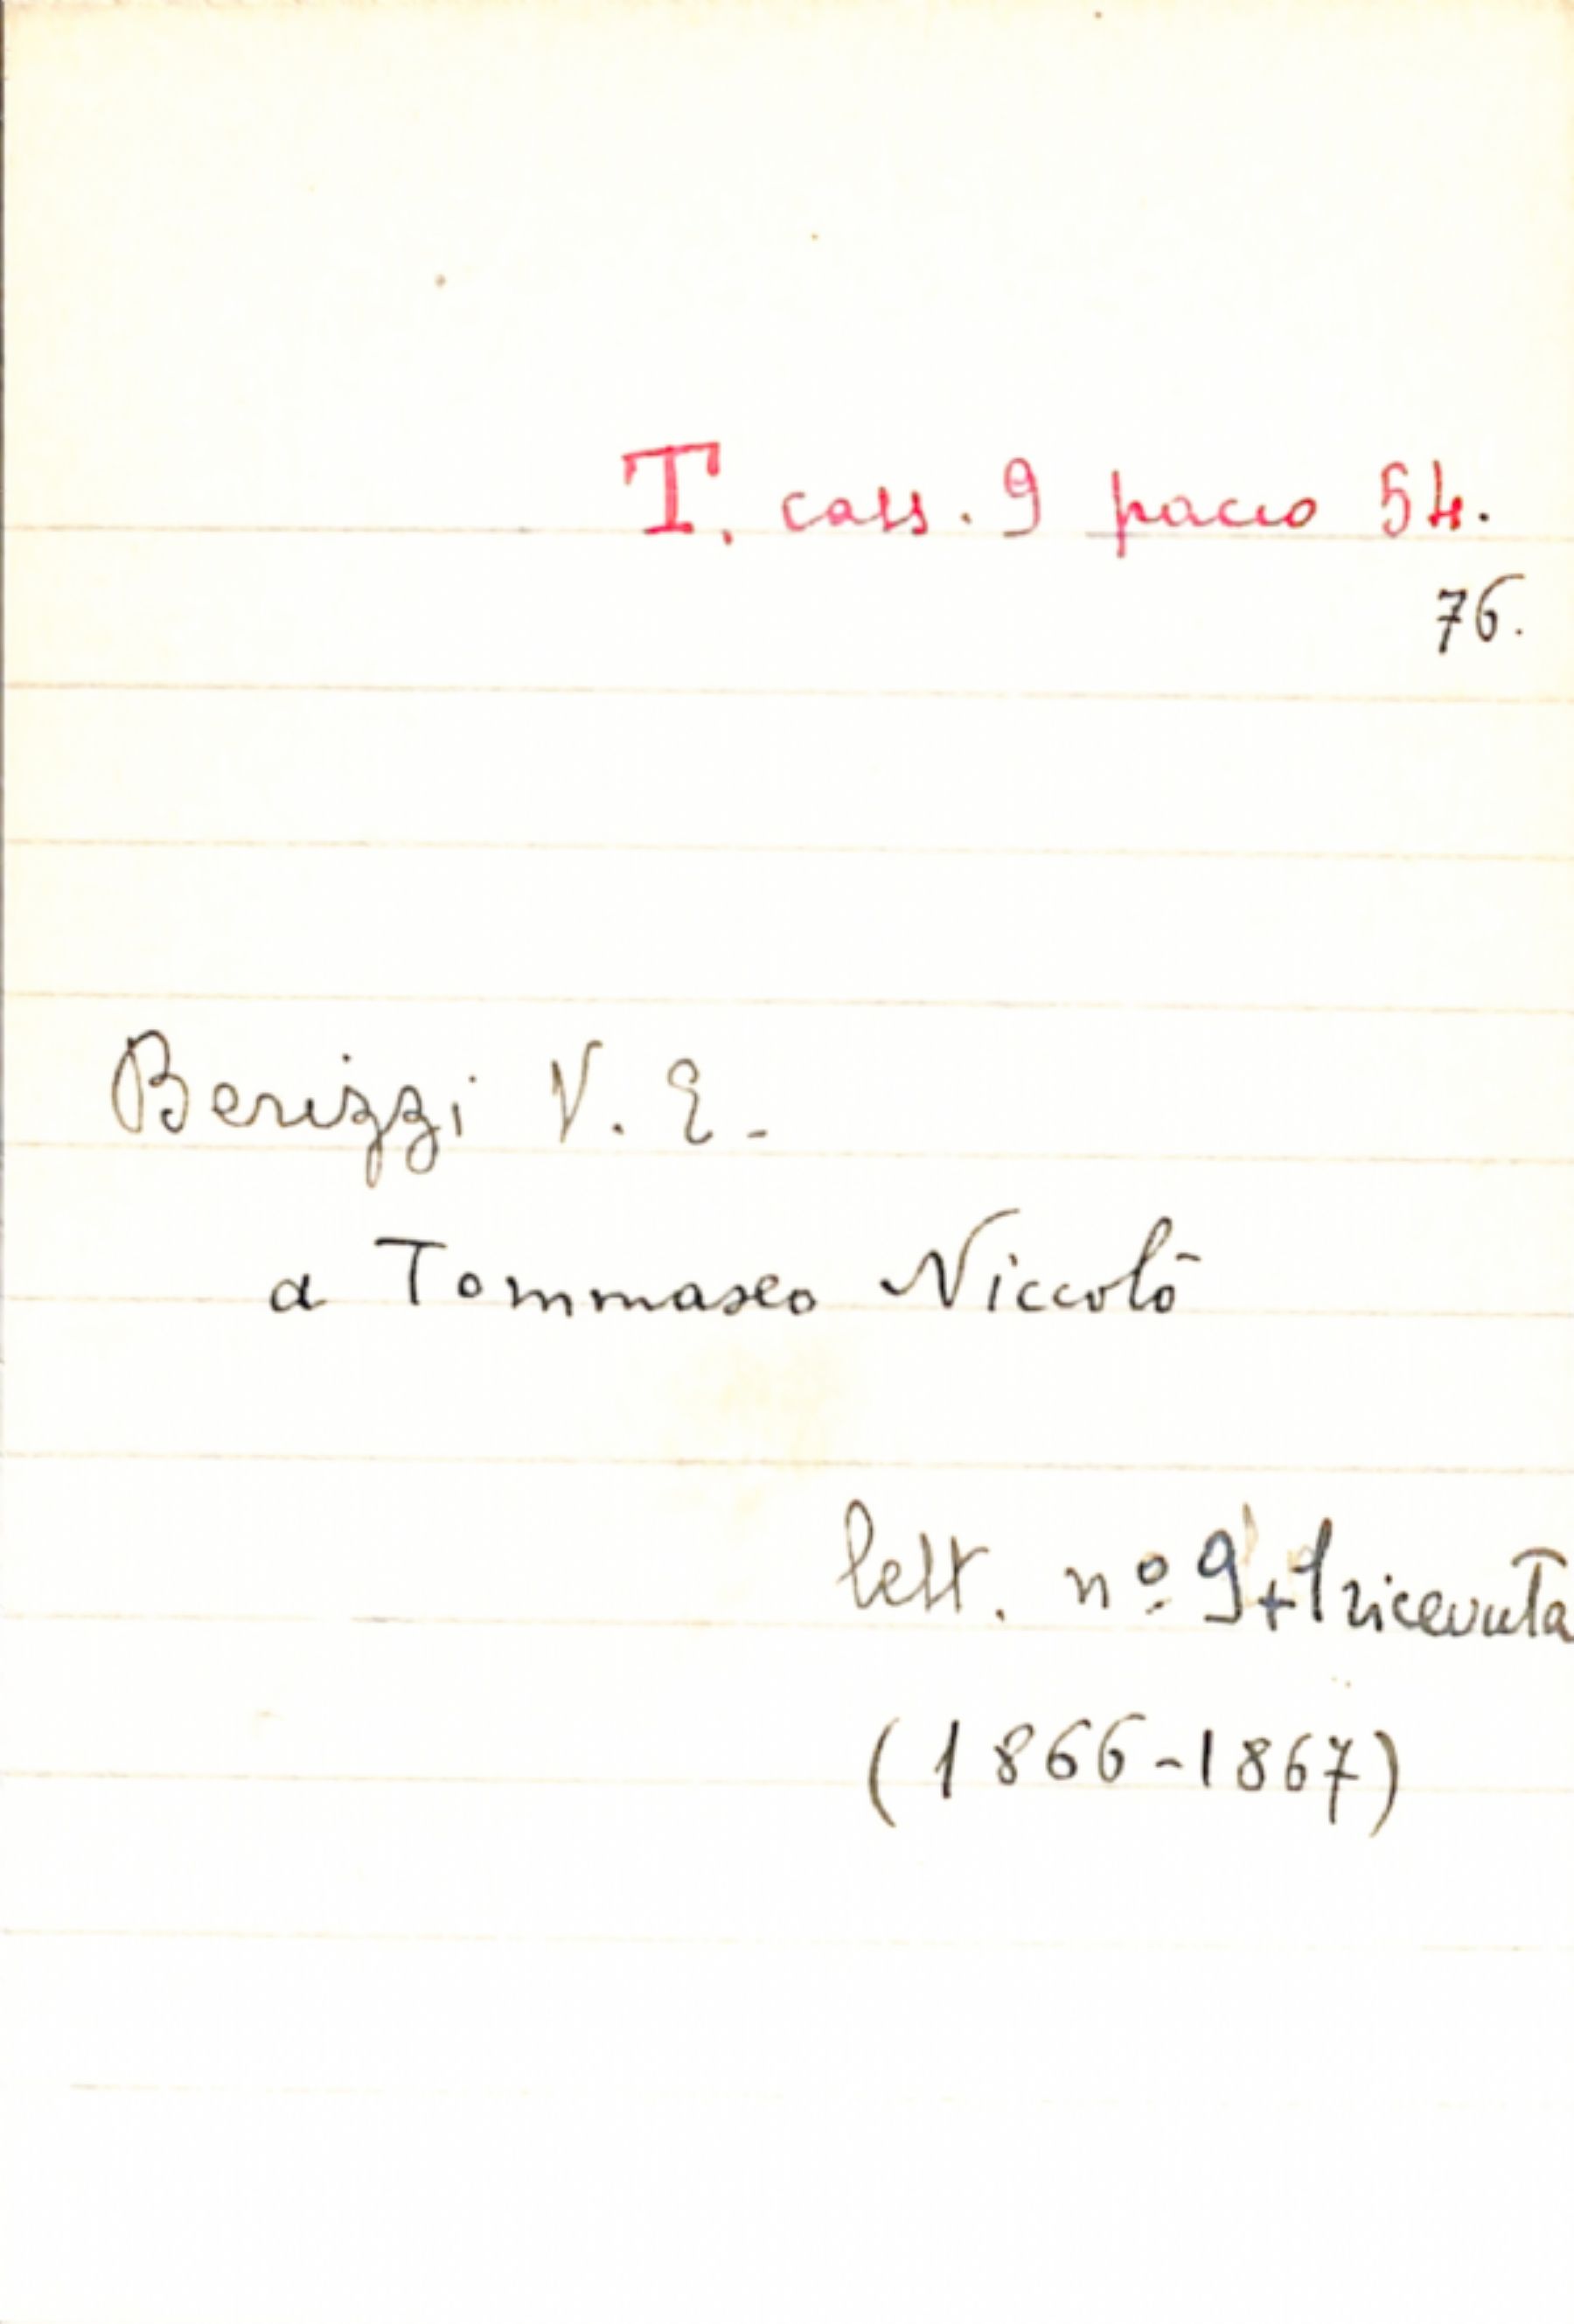 T. cass. 9 pacco 54.
76.
Berizzi V. E.
a Tommaseo Niccolò
lett. nº 9+1 ricevuta
(1866-1867)